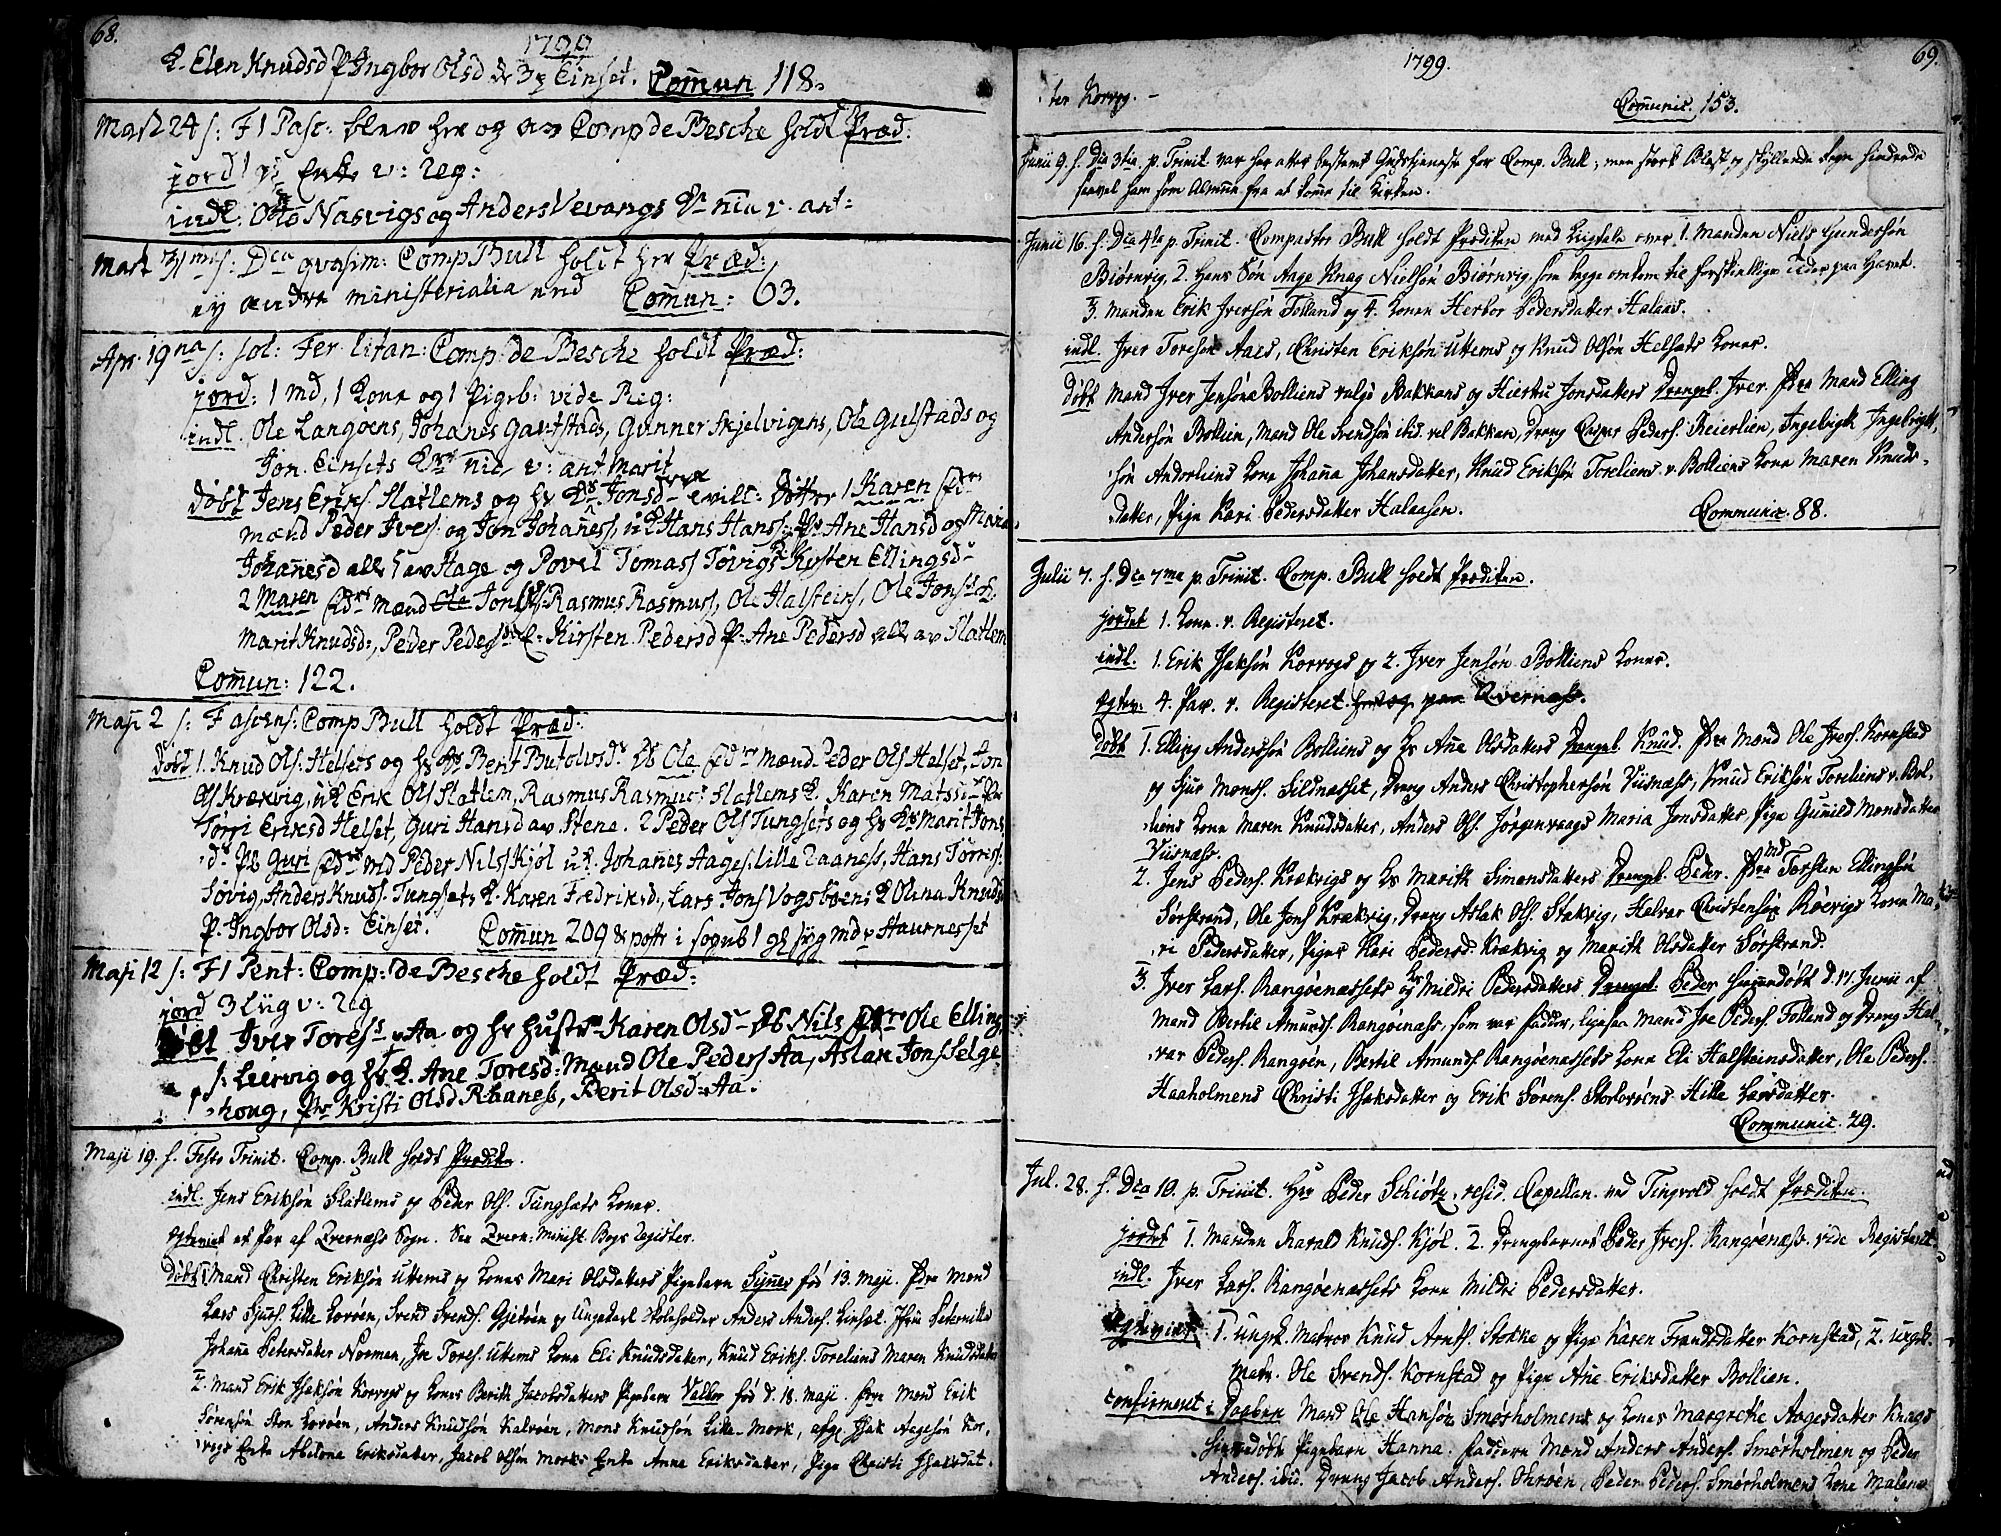 68.
1799
K. Elen Knudsd P Ingbor Olsd Einset. Comun 118.
Mart 24 s: F 1 Pasc: blev her og av Comp de Besche holdt Præd:
jord 1 Enke v: Reg:
indl. Ole Nasvigs og Anders Vevangs
Mart 31 s: Dca qvasim: Comp Bull holdt her Præd:
ey andre ministerialia end Comun: 63.
Apr 19 s: sol: Fer litan: Comp: de Besche holdt Præd:
jord: 1 md, 1 Kone og 1 Pigeb: vide Reg:
indl. Ole Langøens, Johanes Gautstads, Gunner Skjelvigens, Ole Gulstads og
Jon Einsets
døbt Jens Eriks Slatlems og Jonsd tvill: Døttre 1 Karen
mænd Peder Ivers: og Jon Johaness, Hans Hanss: Ane Hansd og Maria
Johanesd alle av Hage og Povel Tomass Tøvigs Kirsten Ellingsd
2 Maren mænd Rasmus Rasmuss, Ole Halsteins, Ole Jons
Marit Knudsd:, Peder Peders K: Kirsten Pedersd P: Ane Pedersd alle av Slatlem
Comun: 122.
Maji 2 s: F ascens: Comp Bull holdt Præd:
døbt 1. Knud Ols: Helsets og Berit Butolvsd Ole mænd Peder Ols Helset, Jon
Ols Krækvig, Erik Ols Slatlem, Rasmus Rasmus: Slatlems K. Karen Matsd
Tørri Eriksd Helset, Guri Hansd av Stene. 2 Peder Ols Tungsets og Marit Jons
d: Guri md Peder Nils Kjøl Johanes Aages: lille Raanes, Hans Tørres:
Søvig, Anders Knuds: Tungsets K. Karen Fredriksd:, Lars Jons Vogsbøens K Olena Knudsd
P. Ingbor Olsd: Einset. Comun 209
Maji 12 s: F 1 Pent: Comp: de Besche holdt Præd:
jord 3 liig v: Reg
døbt Iver Tores Aa og hustr Karen Olsd Nils Ole Elling
s: Leirvig og K. Ane Toresd: Mand Ole Peders Aa, Aslak Jons Selge
houg, Kristi Olsd Raanes, Berit Olsd: Aa.
Maji 19. s. Festo Trinit. Comp. Bull holdt Prædiken.
indl. Jens Eriksøn Slatlems og Peder Ols. Tungsæts Koner.
egteviet et Par af Qvernæss Sogn. See Qvern: Minist. Bogs Register.
Døbt 1 Mand Christen Eriksøn Uttems og Kones Mari Olsdatters Pigebarn Synnev fød 13. Maji. Mænd
Lars Siurs. Lille Korøen, Svend Svends. Gjetøen og Ungekarl Skoleholder Anders Anders. Einset. Peternille
Johana Petersdatter Norman, Tores. Uttems Kone Eli Knudsdatter, Knud Eriks. Toreliens Maren Knudsdatter
2. Mand Erik Isaksøn Korvogs og Kones Berith Jacobsdatters Pigebarn Valbor fød d. 18. Maji. Mænd Erik
Sørensøn Store Korøen, Anders Knudsøn Kalvøen, Mons Knudsøn Lille-Mork, afg. Isak Aagesøn Kor,
vogs Enke Abelone Eriksdatter, Jacob Olsøn Morks Enke Anne Eriksdatter, Pige Christi Isaksdat.
69.
1799.
ter Korvog. Communic. 153.
Junii 9. s. Dca 3tia p. Trinit. var her atter bestemt Gudstieneste for Comp. Bull; men stærk Blæst og skyllende Regn hindrede
saavel ham som Almuen fra at komme til Kirken.
Junii 16. s. Dca 4ta p. Trinit. Compastor Bull holdt Prædiken med Liigtale over 1. Manden Niels Gundersøn
Biørnvig, 2. Hans Søn Aage Knag Nielsøn Biørnvig som begge omkom til forskiellige Tider paa Havet.
3. Manden Erik Iversøn Folland og 4. Konen Herbor Pedersdatter Halaas.
indl. Iver Toresøn Aaes, Christen Eriksøn Uttems og Knud Olsøn Helsæts Koner.
Døbt Mand Iver Jensøn Bolliens Bakkens og Kiersti Jonsdatters Drengeb. Iver. Mand Elling
Andersøn Bollien, Mand Ole Svendsøn ibid. vel Bakken, Dreng Casper Peders. Reierlien, Ingebrigt Ingebrigt,
søn Anderleins Kone Johana Johansdatter, Knud Eriksøn Toreliens v. Bolliens Kone Maren Knuds-
datter, Pige Kari Pedersdatter Halaasen. Communic. 88.
Julii 7. s. Dca 7ma p. Trinit. Comp. Bull holdt Prædiken.
jordet 1. Kone v. Registeret.
indl. 1. Erik Isaksøn Korvogs og 2. Iver Jensøn Bolliens Koner.
egtev: 4. Par. v. Registeret Qvernæss.
Døbt 1. Elling Andersøn Bolliens og Ane Olsdatters Drengeb. Knud. Mænd Ole Ivers. Kornstad
og Siur Monss. Sildnæsset, Dreng Anders Christophersøn Viisnæss, Knud Eriksøn Toreliens v. Bol,
liens Kone Maren Knudsdatter, Anders Ols. Jørgenvaags Maria Jonsdatter, Pige Gunild Monsdatter
Viisnæss.
2. Jens Peders. Krækvigs og Marith Simonsdatters Drengeb. Peder. Md Torsten Ellingsøn
Sørstrand, Ole Jons Krækvig, Dreng Aslak Ols. Stakvig, Halvor Christensøn Røevigs Kone Ma,
ri Pedersdatter, Piger Kari Pedersd: Krækvig og Marith Olsdatter Sørstrand.
3. Iver Lars. Rangøenæssets og Mildri Pedersdatters Drengeb. Peder hiemedøbt d. 11. Junii af
Mand Bertil Amunds. Rangøenæss, som var Fadder, ligesaa Mand Peders. Folland og Dreng Hal,
var Peders. Rangøen, Bertil Amunds. Rangøenæssets Kone Eli Halsteinsdatter, Ole Peders.
Haaholmens Christi Isaksdatter og Erik Sørens. Storkorøens Hille Larsdatter.
Communic. 29.
Jul. 28. s. Dca 10. p. Trinit. Hr Peder Schiøtz, resid. Capellan ved Tingvold holdt Prædiken.
jordet 1. Manden Harald Knuds. Kjøl. 2. Drengebarnet Peder Ivers. Rangøenæss. vide Registeret
indl. Iver Lars. Rangøenæssets Kone Mildri Pedersdatter.
Egteviet 1. Ungk. Matros Knud Arnts. Stokke og Pige Karen Frandsdatter Kornstad, 2. Ungk.
Matr. Ole Svends. Kornstad og Pige Ane Eriksdatter Bollien.
Confirmeret i Daaben Mand Ole Hansøn Smørholmens og Kones Margrethe Aagesdatter Knags
hiemedøbt Pigebarn Hanna. Faddere Mænd Anders Anders. Smørholmen og Peder
Anders. ibid. Dreng Jacob Anders. Ohrøen, Peder Peders. Smørholmens Kone Malene